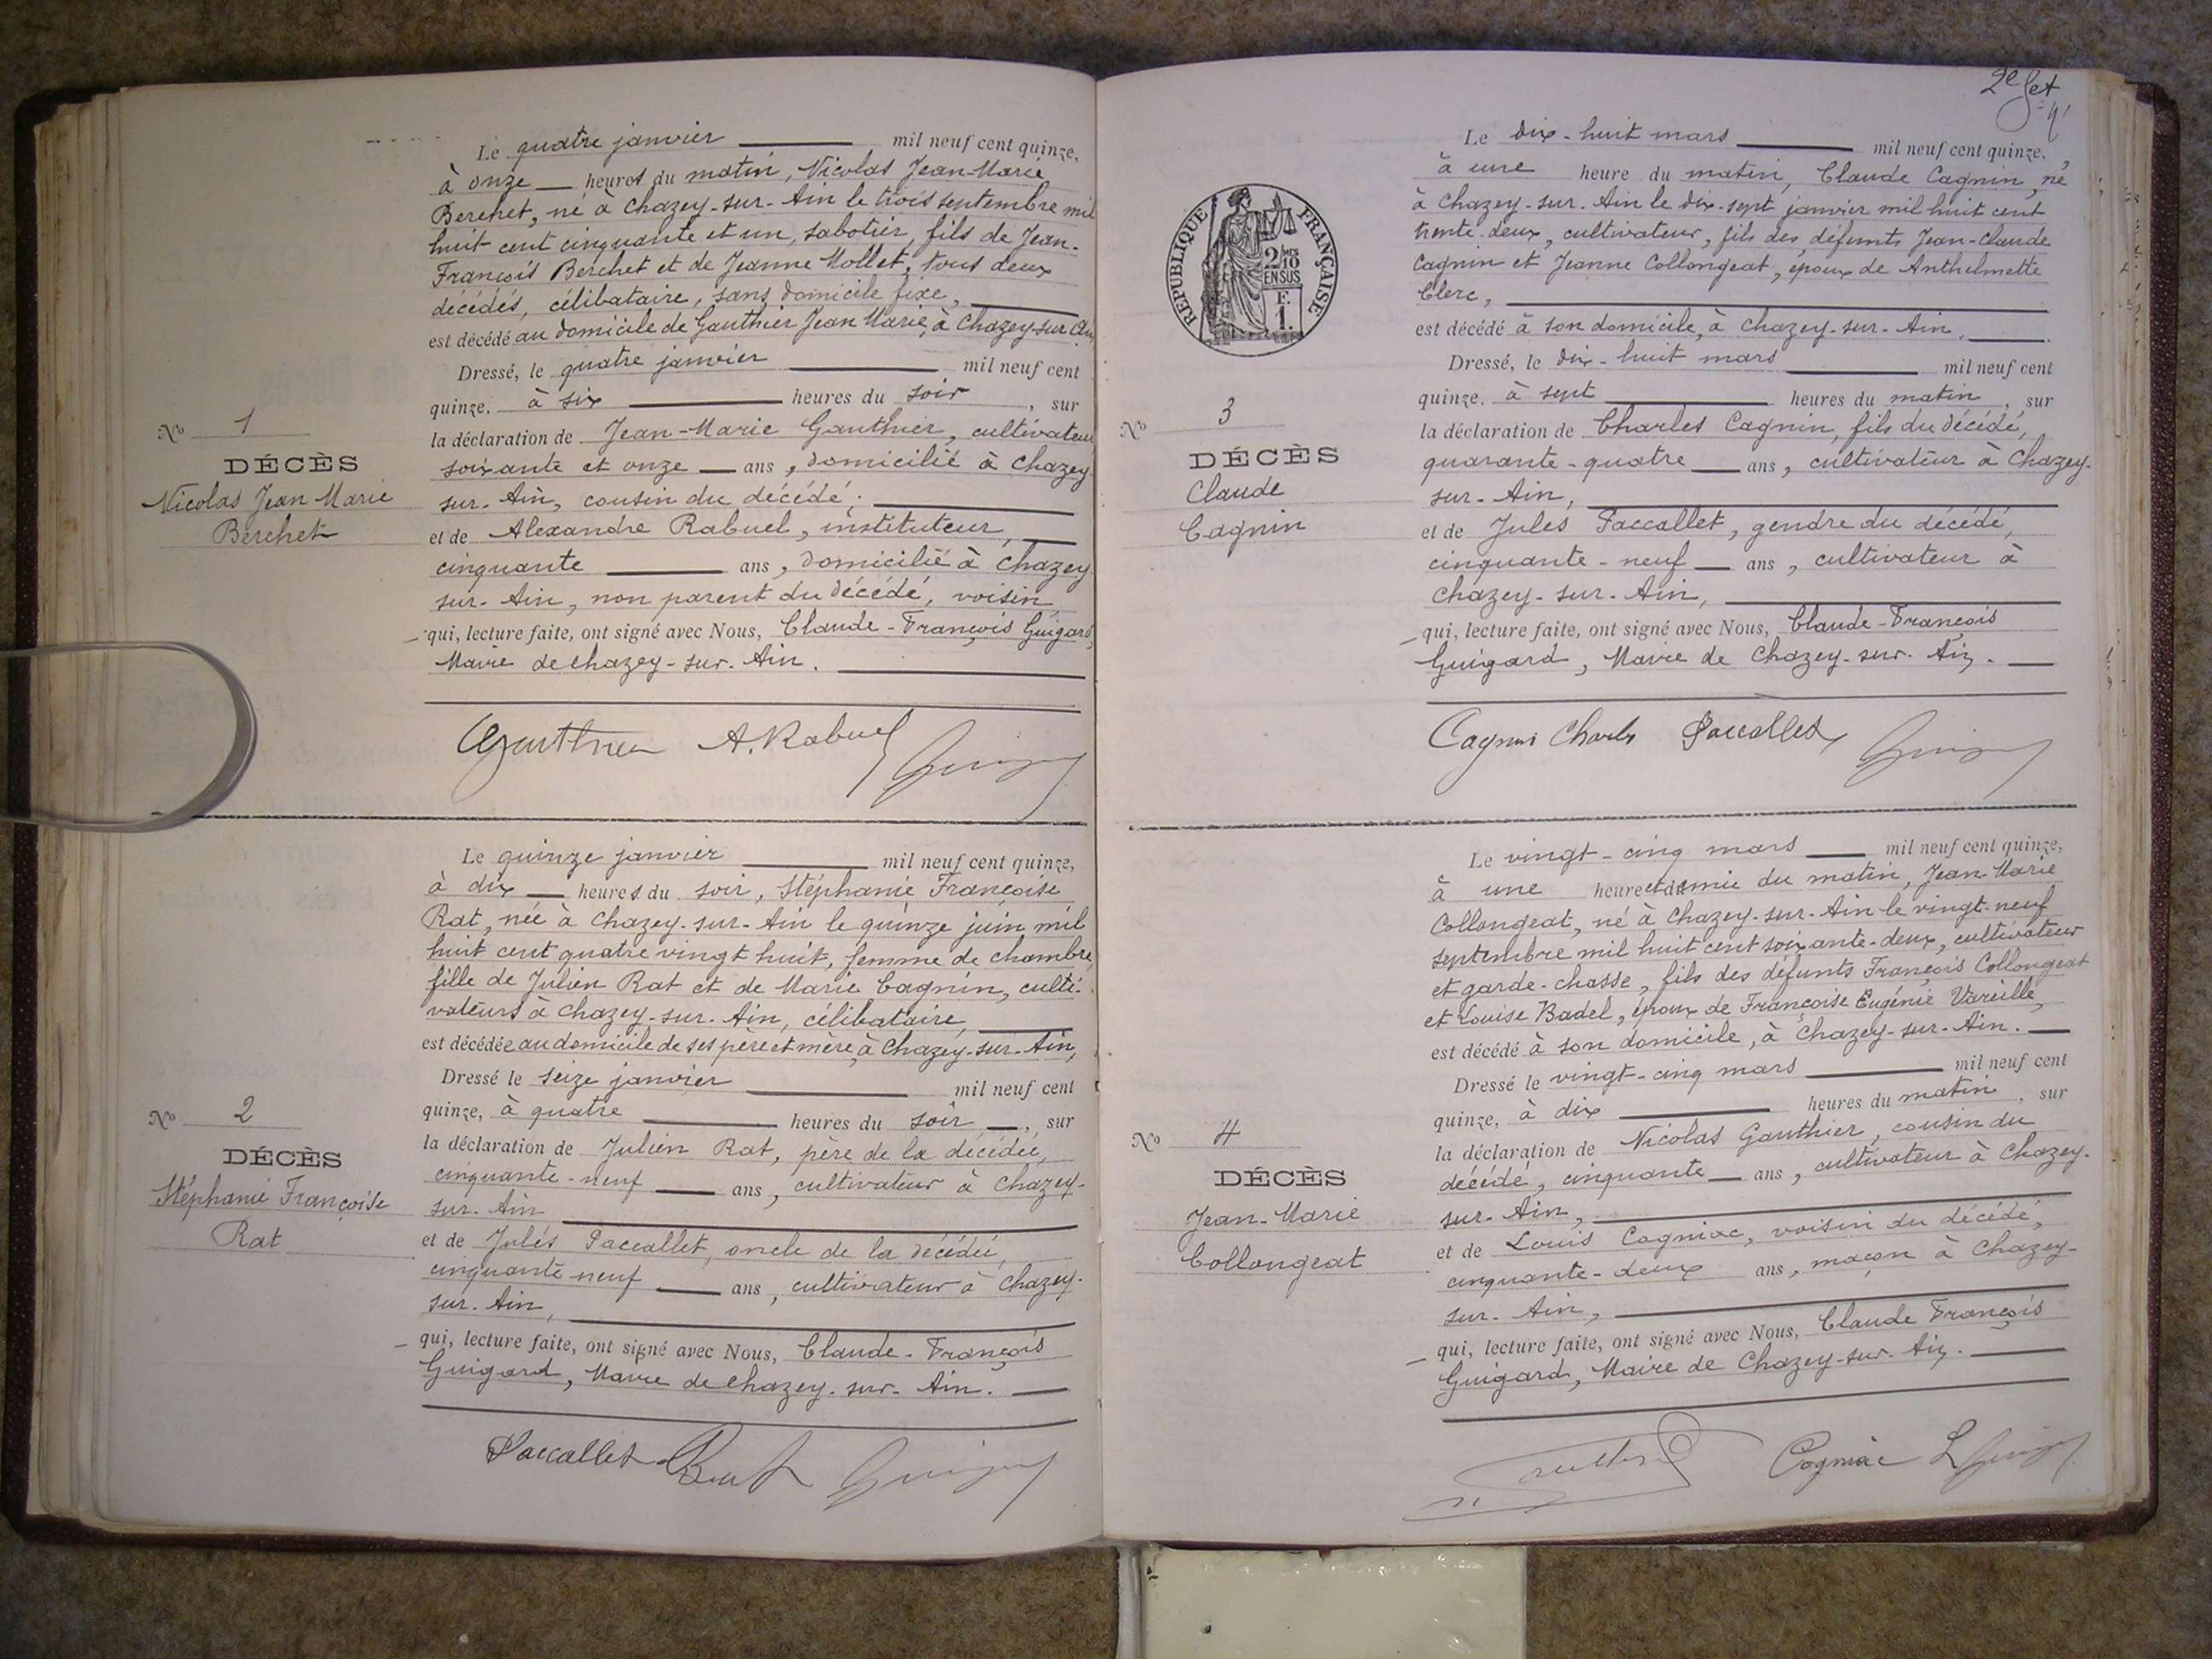 Le quatre janvier mil neuf cent quinze,
à onze heures du matin, Nicolas Jean-Marie
Berchet, né à Chazey-sur-Ain le trois septembre mil
huit cent cinquante et un, sabotier, fils de Jean-
François Berchet et de Jeanne Mollet, tous deux
décédés, célibataire, sans domicile fixe,
est décédé au domicile de Gauthier Jean Marie, à Chazey-sur-Ain
Dressé, le quatre janvier mil neuf cent
quinze, à six heures du soir, sur
la déclaration de Jean-Marie Gauthier, cultivateur
soixante et onze ans, domicilié à Chazey-
sur-Ain, cousin du décédé.
et de Alexandre Rabuel, instituteur,
cinquante ans, domicilié à Chazey-
sur-Ain, non parent du décédé, voisin
qui, lecture faite, ont signé avec Nous, Claude-François Guigard,
Maire de Chazey-sur-Ain.
Nº 1
DÉCÈS
Nicolas Jean Marie
Berchet
Gauthier A. Rabuel Guigard
Le quinze janvier mil neuf cent quinze,
à dix heures du soir, Stéphanie Françoise
Rat, née à Chazey-sur-Ain le quinze juin mil
huit cent quatre vingt huit, femme de chambre,
fille de Julien Rat et de Marie Cagnin, culti-
vateurs à Chazey-sur-Ain, célibataire,
est décédée au domicile de ses père et mère, à Chazey-sur-Ain,
Dressé le seize janvier mil neuf cent
quinze, à quatre heures du soir, sur
la déclaration de Julien Rat, père de la décédée,
cinquante-neuf ans, cultivateur à Chazey-
sur-Ain
et de Jules Paccallet, oncle de la décédée,
cinquante neuf ans, cultivateur à Chazey-
sur-Ain,
qui, lecture faite, ont signé avec Nous, Claude-François
Guigard, Maire de Chazey-sur-Ain.
Nº 2
DÉCÈS
Stéphanie Françoise
Rat
Paccallet Rat Guigard
2e fet
RÉPUBLIQUE FRANÇAISE
2/10
EN SUS
F.
1.
Le dix-huit mars mil neuf cent quinze,
à une heure du matin, Claude Cagnin, né
à Chazey-sur-Ain le dix-sept janvier mil huit cent
trente-deux, cultivateur, fils des défunts Jean-Claude
Cagnin et Jeanne Collongeat, époux de Anthelmette
Clerc,
est décédé à son domicile, à Chazey-sur-Ain.
Dressé, le dix-huit mars mil neuf cent
quinze, à sept heures du matin, sur
la déclaration de Charles Cagnin, fils du décédé,
quarante-quatre ans, cultivateur à Chazey-
sur-Ain,
et de Jules Paccallet, gendre du décédé,
cinquante-neuf ans, cultivateur à
Chazey-sur-Ain,
qui, lecture faite, ont signé avec Nous, Claude-François
Guigard, Maire de Chazey-sur-Ain.
Nº 3
DÉCÈS
Claude
Cagnin
Cagnin Charles Paccallet Guigard
Le vingt-cinq mars mil neuf cent quinze,
à une heure et demie du matin, Jean-Marie
Collongeat, né à Chazey-sur-Ain le vingt-neuf
septembre mil huit cent soixante-deux, cultivateur
et garde-chasse, fils des défunts François Collongeat
et Louise Badel, époux de Françoise Eugénie Vareille,
est décédé à son domicile, à Chazey-sur-Ain.
Dressé le vingt-cinq mars mil neuf cent
quinze, à dix heures du matin, sur
la déclaration de Nicolas Gauthier, cousin du
décédé, cinquante ans, cultivateur à Chazey-
sur-Ain,
et de Louis Cogniac, voisin du décédé,
cinquante-deux ans, maçon à Chazey-
sur-Ain,
qui, lecture faite, ont signé avec Nous, Claude François
Guigard, Maire de Chazey-sur-Ain.
Nº 4
DÉCÈS
Jean-Marie
Collongeat
Cogniac L Guigard